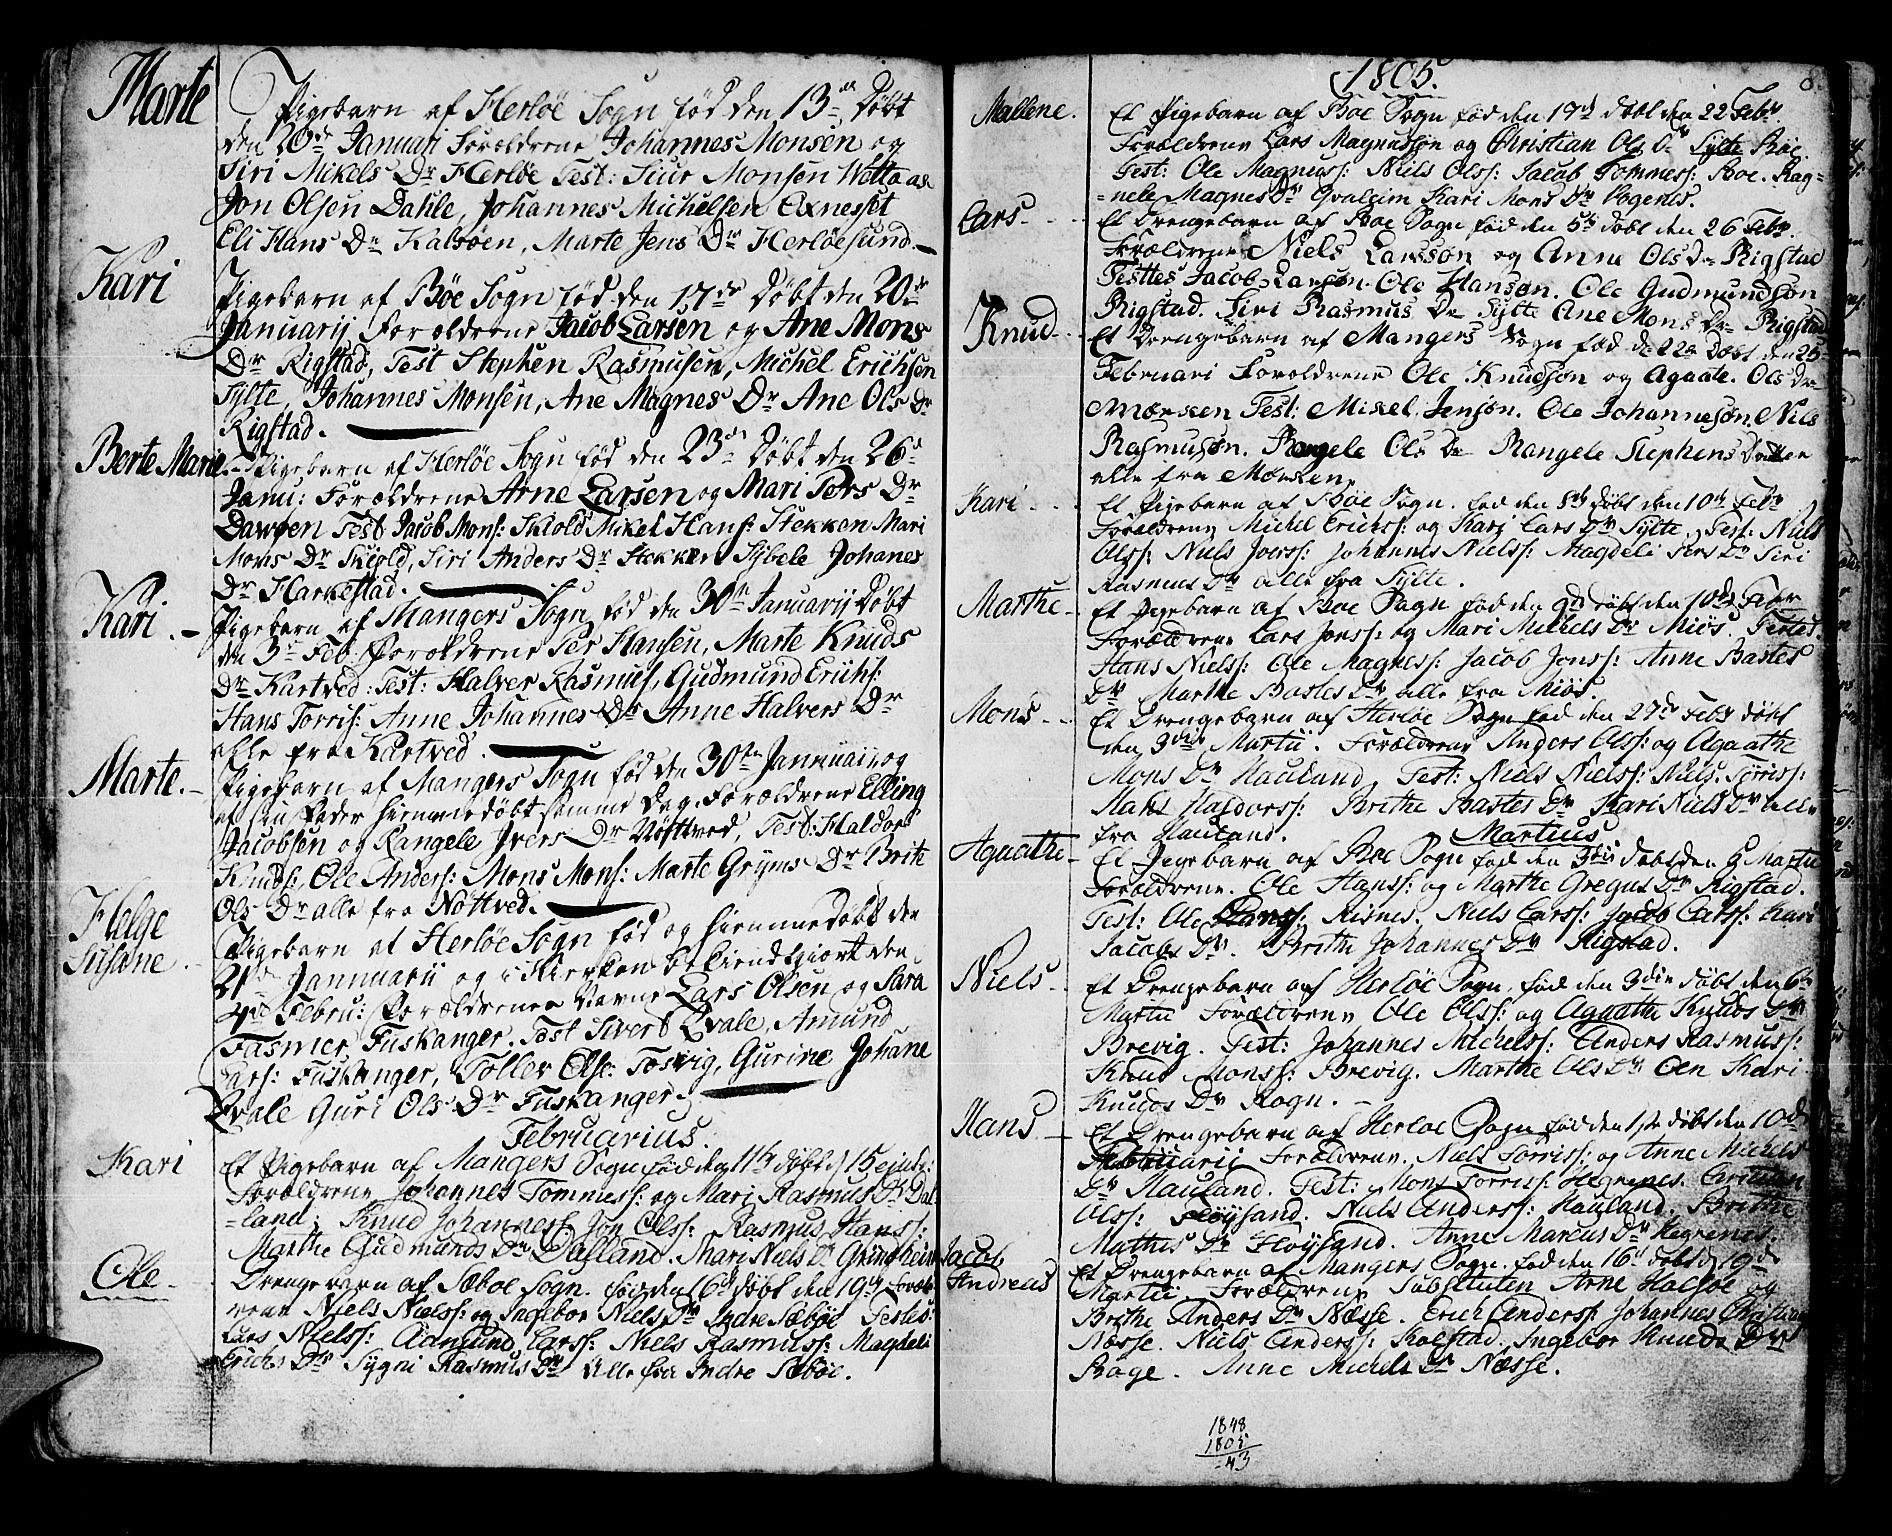 Marte
Pigebarn af Herløe Sogn fød den 13de Døbt
den 20de Januari Foroldrene Johannes Monsen og
Siri Mikels Dr Herløe Test: Siur Monsen
Jon Olsen Dahle, Johannes Michelsen Exnesset
Eli Hans Dr Kalsøen, Marte Jens Dr Herløesund.
Kari
Pigebarn af Bøe Sogn fød den 17de Døbt den 20de
Januarij foroldrene Jacob Larsen og Ane Mons
Dr Rigstad, Test Stephen Rasmusen, Michel Erichsen
Sylte, Johannes Monsen, Ane Magnes Dr Ane Ols Dr
Rigstad.
Berte Marie
Pigebarn af Herløe Sogn fød den 23de Døbt den 26de
Janu: Foroldrene Arne Larsen og Mari Pers Dr
Dawgen Test Jacob Mons: Skiold Mikel Hans: Stekken Mari
Mons Dr Skiold, Siri Anders Dr Stekken Sybele Johanes
Dr Harkestad.
Kari
Pigebarn af Mangers Sogn, fød den 30te Januarij Døbt
den 3de Feb: Foroldrene Per Hansen, Marte Knuds
Dr Kartved: Test: Halver Rasmus, Gudmund Erichs:
Hans Torris: Anne Johannes Dr Anne Halvers Dr
alle fra Kartved.
Marte.
Pigebarn af Mangers Sogn fød den 30te Januaij, og
af sin Fader hiemmedøbt samme Dag. Foroldrene Elling
Jacobsen og Rangele Ivers Dr Nøttved, Test: Haldor
Knuds:, Ole Anders: Mons Mons: Marte Gryms Dr Brite
Ols Dr alle fra Nøttved.
Helge
Susane
Pigebarn af Herløe Sogn fød og hiemmedøbt den
21de Jannuarij og i Kierken bekiendtgiort den
4de Febru: Foroldrenes Navne Lars Olsen og Sara
Fasmer, Fuskanger. Test Sivert Qvale, Amund
Lars: Fuskanger, Toller Olse: Tosvig, Gurine Johane
Qvale Guri Ols Dr Fuskanger.
Februarius.
Kari
Et Pigebarn af Mangers Sogn fød den 11te døbt d 15 ejusd:
Forældrene Johannes Tommess: og Mari Rasmus Dr Dal
=land: Knud Johanness: Jon Olss: Rasmus Hanss:
Marthe Gudmunds Dr Dalland. Mari Niels Dr Grindheim
Ole
Drengebarn af Sæboe Sogn. fød den 16d døbt den 19d Foræl
rene Niels Nielss: og Ingebor Niels Dr Indre Sæbøe Testes:
Lars Nielss: Admund Larss: Niels Rasmuss: Magdeli
Erichs Dr Sygni Rasmus Dr Alle fra Indre Sæbøe.
1805.
8
Mallene.
Et Pigebarn af Boe Sogn fød den 17d døbt den 22 Febr.
Forældrene Lars Magnussøn og Christian Ols Dr Sylte Böe
Test: Ole Magnuss: Niels Olss: Jacob Tommess: Boe. Rag=
=nele Magnes Dr Qvaleim Kari Mons Dr Vogenes.
Lars
Et Drengebarn af Boe Sogn fød den 5te døbt den 26 Febr.
Forældrene Niels Larssøn og Anne Olsd Rigstad
Testtes Jacob Larsøn. Ole Hansøn. Ole Gudmundsøn
Rigstad. Siri Rasmus Dr Sylte Ane Mons Dr Rigstad
Knud
Et Drengebarn af Mangers Sogn fød d 22d Døbt den 25
Februari Foroldrene Ole Knudsøn og Agaate Ols Dr
Mørken Test: Mikel Jensøn. Ole Johannesøn. Nils
Rasmusøn. Rangele Ols Dr Rangele Stephens Datter
alle fra Mørken.
Kari
Et Pigebarn af Böe Sogn. fød den 8de døbt den 10de Febr
Forældrene Michel Erichss: og Kari Lars Dr Sylte. Test: Niels
Olss: Niels Jonss: Johannes Nielss: Magdeli Pers Dr Siri
Rasmus Dr alle fra Sylte.
Marthe
Et Pigebarn af Boe Sogn fød den 9d døbt den 10de Febr
Forældrene Lars Jonss: og Mari Michels Dr Miøs. Testes
Hans Nielss: Ole Magness: Jacob Jonss: Anne Bastes
Dr Marthe Bastes Dr alle fra Miøs.
Mons
Et Drengebarn af Herløe Sogn fød den 27de Febr døbt
den 3die Martii. Forældrene Anders Olss: og Agaathe
Mons Dr Hauland, Test: Niels Nielss: Niels Torriss:
Mads Haldorss: Brithe Bastes Dr Kari Niels Dr alle
fra Hauland.
Martius
Agaathe
Et Pigebarn af Boe Sogn fød den 3die døbt den 6 Martii
Forældrene. Ole Hanss: og Marthe Gregus Dr Rigstad.
Test: Ole Hanss: Risnes. Niels Larss: Jacob Larss: Kari
Jacobs Dr. Brithe Johannes Dr Rigstad.
Niels
Et Drengebarn af Herløe Sogn, fød den 3die døbt den 6te
Martii Forældrene Ole Olss: og Agaathe Knuds Dr
Brevig. Test: Johannes Michelss: Anders Rasmuss:
Knud Monss: Brevig. Marthe Ols Dr Oen Kari
Knuds Dr Rogn.
Hans
Et Drengebarn af Herløe Sogn fød den 1ste døbt den 10de
Februarij Forældrene. Niels Torriss: og Anne Michels
Dr Hauland. Test: Mons Torriss: Hegrenes. Cristian
Olss: Fløysand. Niels Anderss: Hauland. Brithe
Mathis Dr Fløysand. Anne Marcus Dr Hegrenes.
Jacob
Andreas
Et Drengebarn af Mangers Sogn. fød den 16d døbt d 19de
Martii. Forældrene Substituten Arne Halsøe og
Brithe Anders Dr Næsse. Erich Anderss: Johannes Christian
Næsse. Niels Anderss: Kolstad, Ingebor Knuds Dr
Boge. Anne Michels Dr Næsse.
1848
1805
43